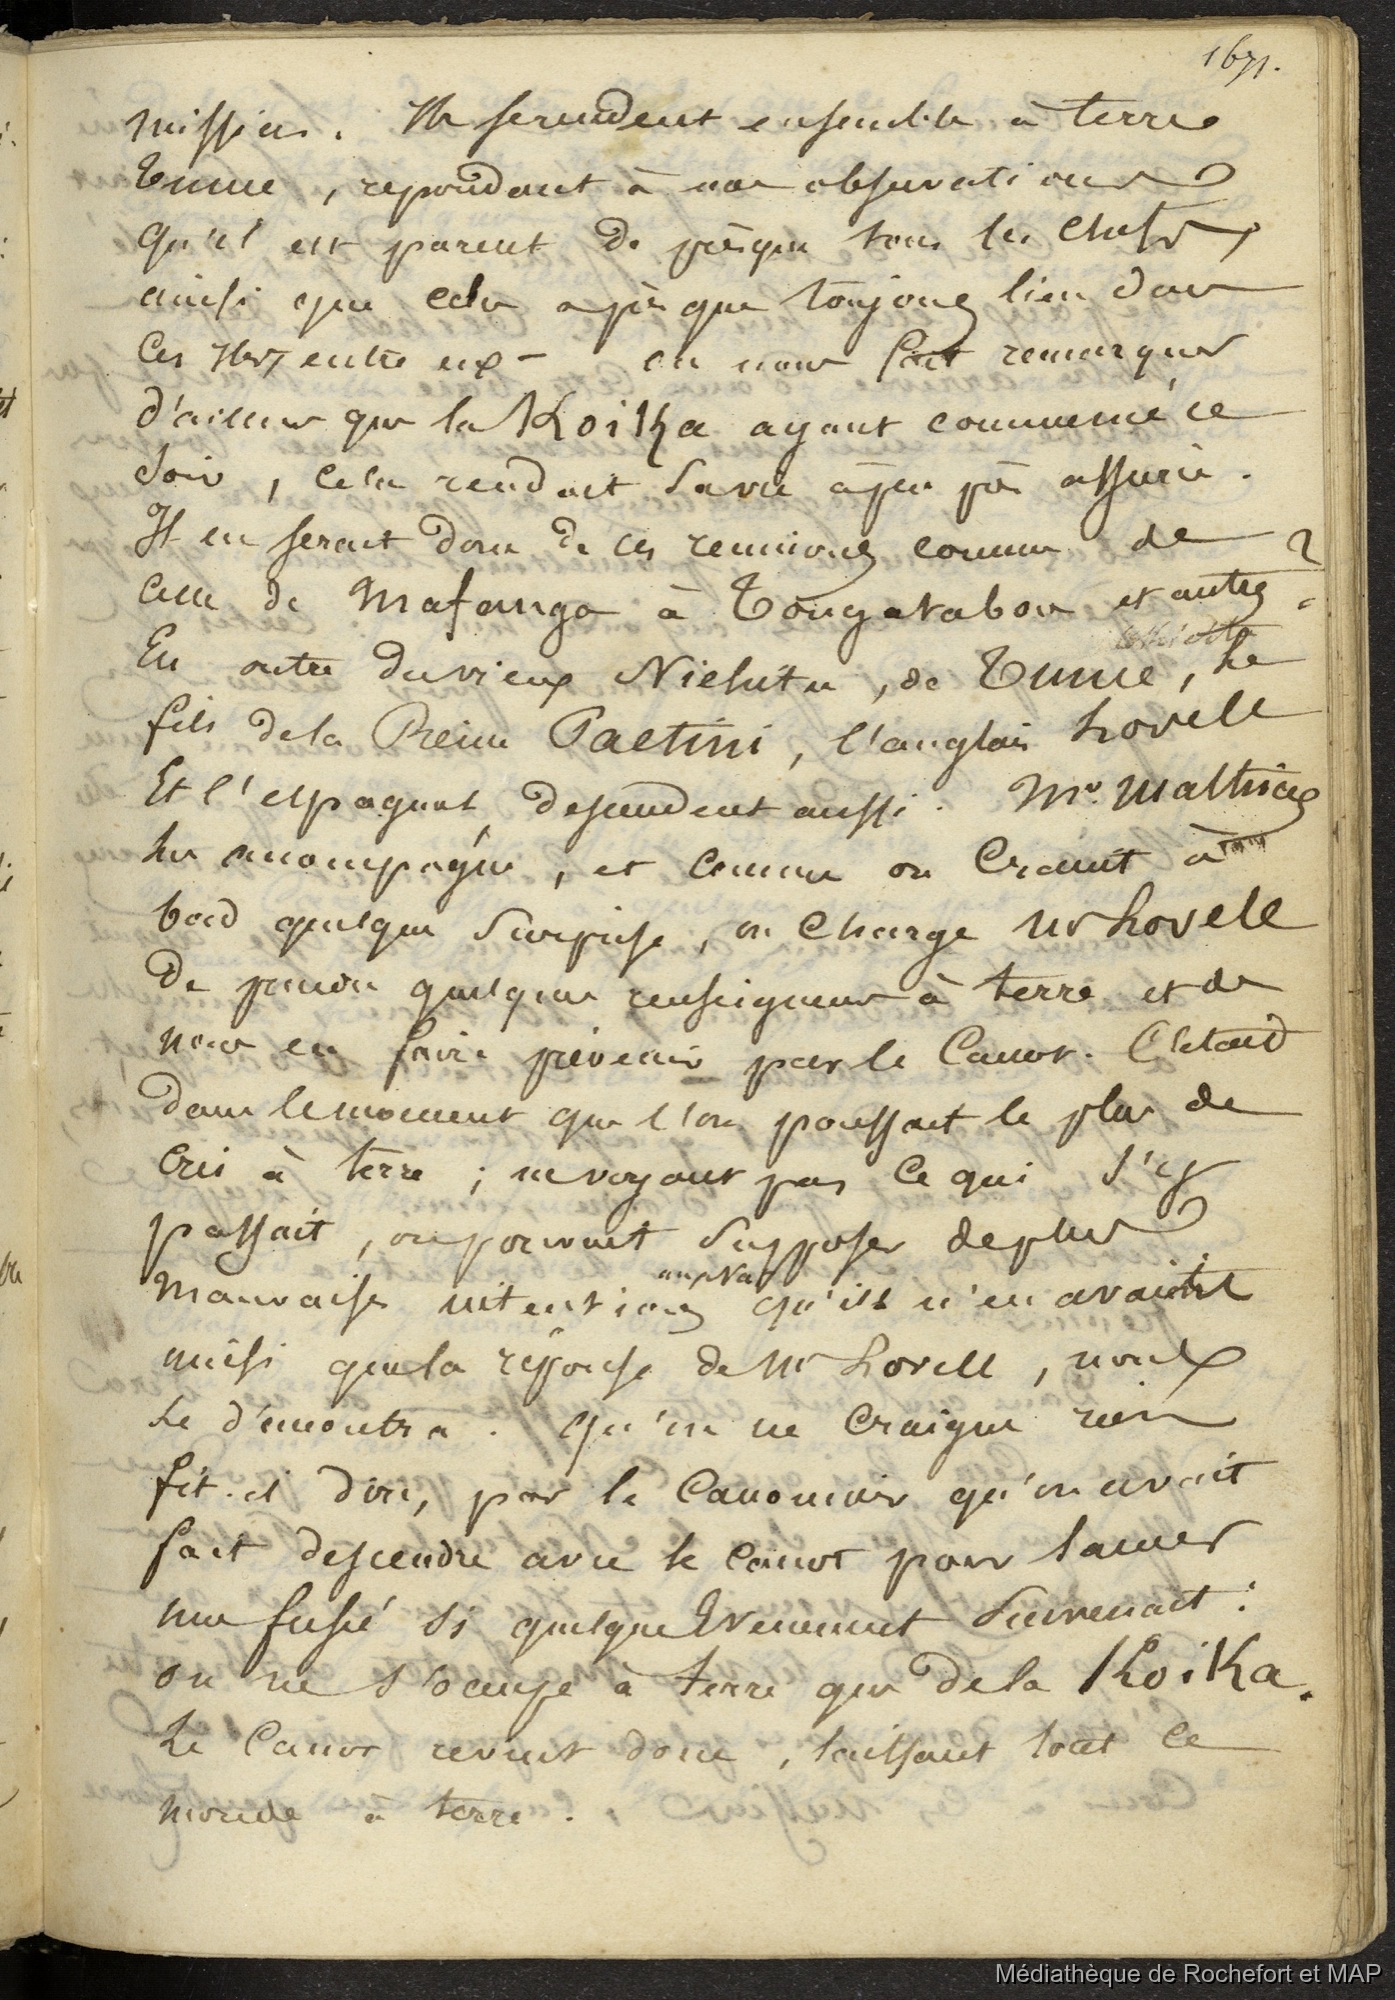 1671.
missien. Ils se rendent ensemble à terre
Tumie, repondant à nos observations
qu'il est parent de presque tous les chefs,
ainsi que cela a presque toujours lieu dans
ces îles entre eux - on nous fait remarquer
d'ailleurs que la Koïka ayant commencé ce
soir, cela rendait sa vie à peu près assurée.
Il en serait donc de ces reunions comme de
celle de Mafanga à Tongatabou et autres ?
En outre du vieux Niehitu, de Tumie, le
fils de la Reine Paetini, l'anglais Lovell
Et l'espagnol descendent aussi. Mr. Mathieu
les accompagne, et comme on craint à
bord quelque surprise, on charge Mr Lovell
de prendre quelques renseignemens à terre et de
nous en faire prevenir par le Canot. C'etait
dans le moment que l'on poussait le plus de
cris à terre ; ne voyant pas ce qui s'y
passait, on pouvait supposer de plus
mauvaises intentions aux Nas qu'ils n'en avaient
ainsi que la réponse de Mr Lovell, nous
le démontra. Qu'on ne craigne rien
fit-il dire, par le Canonnier qu'on avait
fait descendre avec le canot pour lancer
une fusée si quelque Evenement survenait :
on ne s'occupe à terre que de la Koïka.
Le Canot revint donc, laissant tout ce
monde à terre.
Médiathèque de Rochefort et MAP